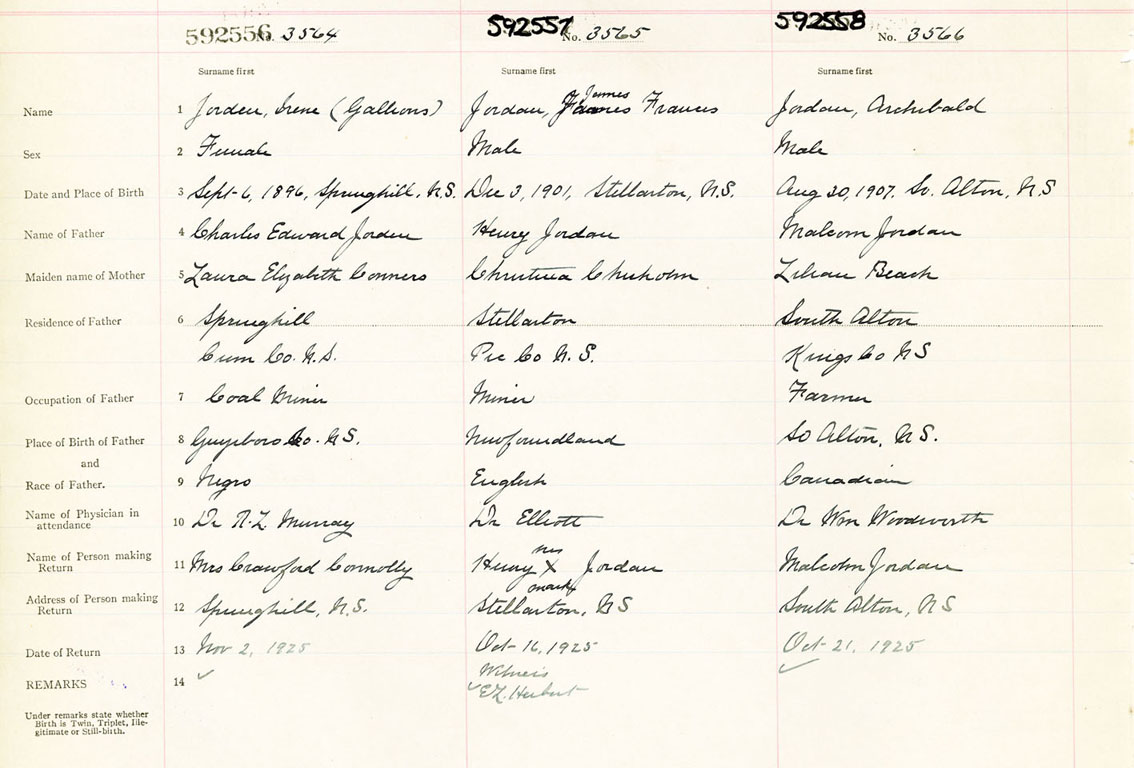 592556 No. 3564 592557 No. 3565 592558 No. 3566
Surname first Surname first Surname first
Name 1 Jorden, Irene (Gallions) Jordan, James James Francis Jordan, Archibald
Sex 2 Female Male Male
Date and Place of Birth 3 Sept 6, 1896, Springhill, N.S. Dec 3, 1901, Stellarton, N.S. Aug 20, 1907. So. Alton, N.S
Name of Father 4 Charles Edward Jorden Henry Jordan Malcom Jordan
Maiden name of Mother 5 Laura Elizabeth Conners Christina Chisholm Lilian Beach
Residence of Father 6 Springhill Stellarton South Alton
Cum Co. N.S. Pic Co N.S. Kings Co NS
Occupation of Father 7 Coal Miner Miner Farmer
Place of Birth of Father 8 Guysboro Co. N.S. Newfoundland So Alton, N.S.
and
Race of Father. 9 Negro English Canadian
Name of Physician in attendance 10 Dr R.L. Murray Dr Elliott Dr Wm Woodworth
Name of Person making Return 11 Mrs Crawford Connolly Henry his X mark Jordan Malcolm Jordan
Address of Person making Return 12 Springhill, N.S. Stellarton, NS South Alton, NS
Date of Return 13 Nov 2, 1925 Oct 16, 1925 Oct 21, 1925
REMARKS 14 Witness
E.L. Herbert
Under remarks state whether
Birth is Twin, Triplet, Ille-
gitimate or Still-birth.